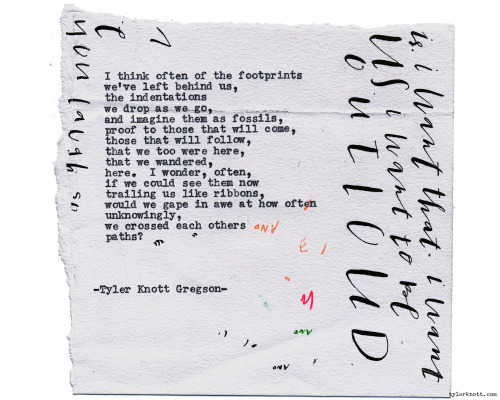 I think often of the footprints
we've left behind us,
the indentations
we drop as we go,
and imagine them as fossils,
proof to those that will come,
those that will follow,
that we too were here,
that we wandered,
here.  I wonder, often,
if we could see them now
trailing us like ribbons,
would we gape in awe at how often
unknowingly,
we crossed each others
paths?
-Tyler Knott Gregson-
you laugh so
is. i want that. i want
US. i want to be
OUT LOUD
AND
AND
AND
tylerknott.com